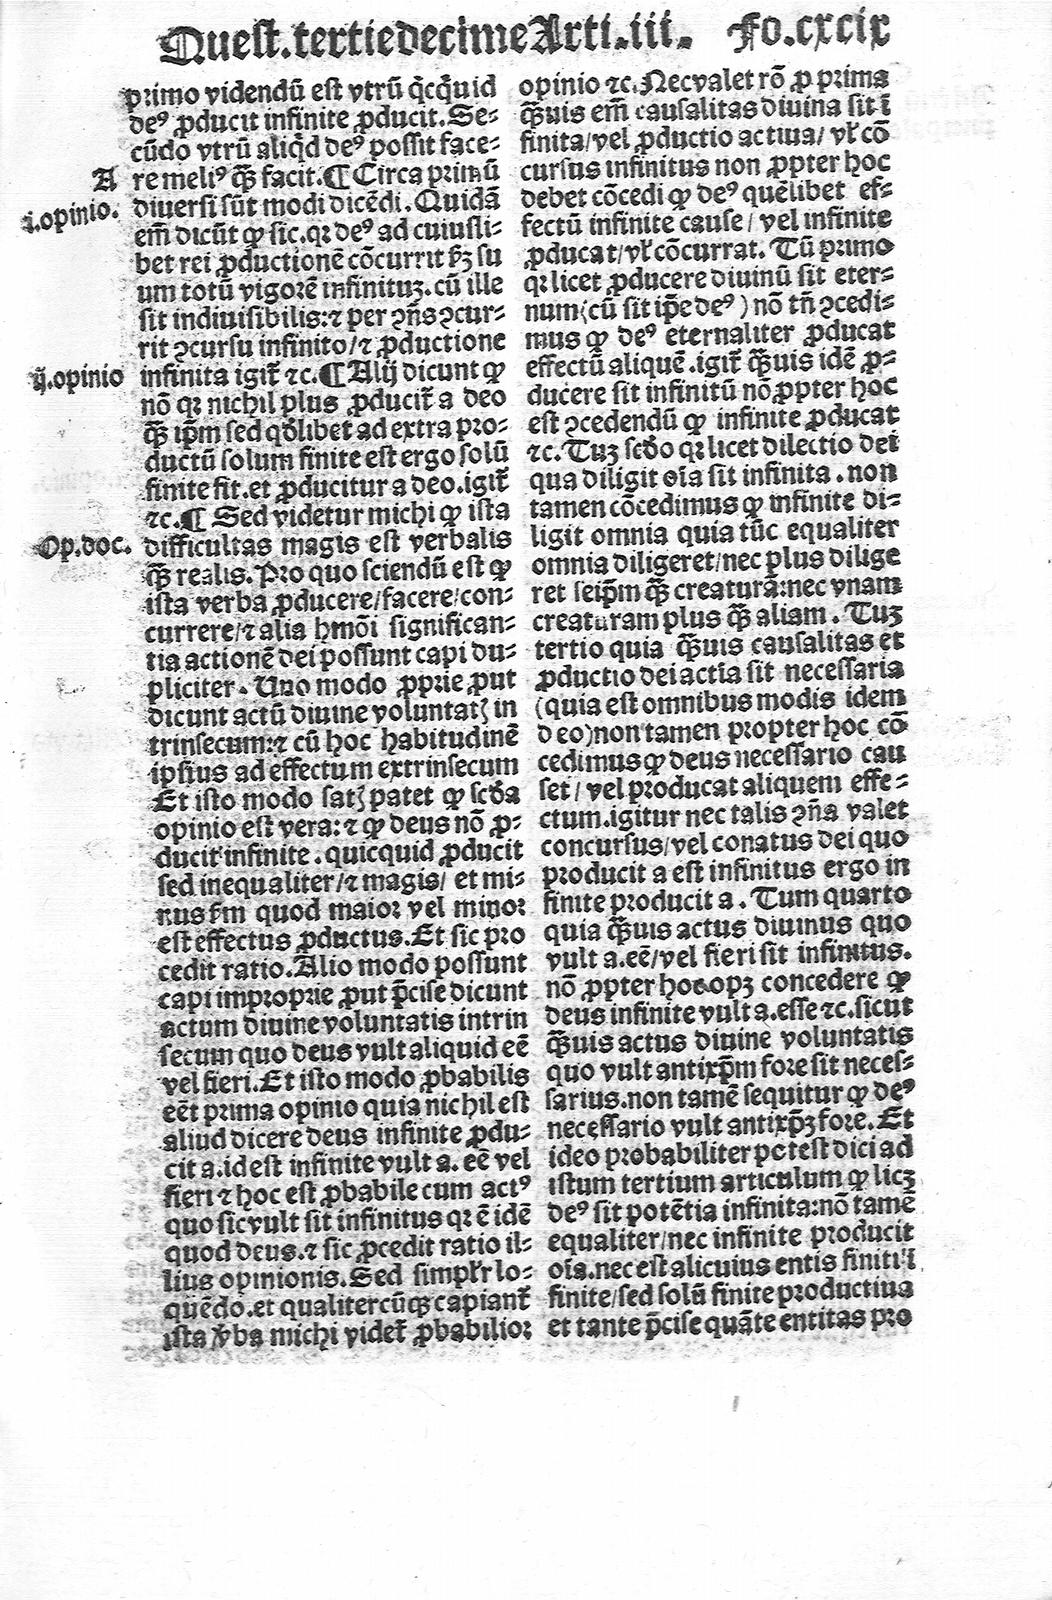 Quest.tertiedecime Arti.iii. Fo.cxcix
primo videndū est vtrū q̇cq̇uid
deꝰ ꝓducit infinite ꝓducit. Se-
cūdo vtrū aliq̇d deꝰ possit face-
A
re meliꝰ q̄ꝫ facit. ¶ Circa primū
i.opinio.
diuersi sūt modi dicēdi. Quidā
em̄ dicūt ꝙ sic. qꝛ deꝰ ad cuiusli-
bet rei ꝓductionē cōcurrit ẜm su
um totū vigorē infinituꝫ. cū ille
sit indiuisibilis: ⁊ per ꝯn̄s ꝯcur-
rit ꝯcursu infinito/⁊ ꝓductione
ij.opinio
infinita igit̄ ⁊c. ¶ Alij dicunt ꝙ
nō qꝛ nichil plus ꝓducit̄ a deo
q̄ꝫ ip̄m sed qdlibet ad extra pro-
ductū solum finite est ergo solū
finite fit. et ꝓducitur a deo. igit̄
⁊c. ¶ Sed videtur michi ꝙ ista
Op.doc.
difficultas magis est verbalis
q̄ꝫ realis. Pro quo sciendū est ꝙ
ista verba ꝓducere/facere/con-
currere/⁊ alia hm̄oi significan-
tia actionē dei possunt capi du-
pliciter. Uno modo ꝓprie ꝓut
dicunt actū diuine volūtatꝭ in
trinsecum: ⁊ cū hoc habitudinē
ipsius ad effectum extrinsecum
Et isto modo satꝭ patet ꝙ scd̄a
opinio est vera: ⁊ ꝙ deus nō ꝓ-
ducit infinite. quicquid ꝓducit
sed inequaliter/⁊ magis/ et mi-
nus ẜm quod maior vel minor
est effectus ꝓductus. Et sic pro
cedit ratio. Alio modo possunt
capi improprie ꝓut p̄cise dicunt
actum diuine voluntatis intrin
secum quo deus vult aliquid eē
vel fieri. Et isto modo ꝓbabilis
eēt prima opinio quia nichil est
aliud dicere deus infinite ꝓdu-
cit a. id est infinite vult a. eē vel
fieri ⁊ hoc est ꝓbabile cum actꝰ
quo sic vult sit infinitus qꝛ ē idē
quod deus. ⁊ sic ꝓcedit ratio il-
lius opinionis. Sed simpl̄r lo-
quēdo. et qualitercūqꝫ capiant̄
ista v̄ba michi videt̄ ꝓbabilior
opinio ⁊c. Nec valet rō ꝓ prima
q̄ꝫuis em̄ causalitas diuina sit ī
finita/vel ꝓductio actiua/ vl̄ cō
cursus infinitus non ꝓpter hoc
debet cōcedi ꝙ deꝰ quēlibet ef-
fectū infinite cause/ vel infinite
ꝓducat/vl̄ cōcurrat. Tū primo
qꝛ licet ꝓducere diuinū sit eter-
num (cū sit ip̄e deꝰ) nō tn̄ ꝯcedi-
mus ꝙ deꝰ eternaliter ꝓducat
effectū aliquē. igit̄ q̄ꝫuis idē ꝓ-
ducere sit infinitū nō ꝓpter hoc
est ꝯcedendū ꝙ infinite ꝓducat
⁊c. Tuꝫ scd̄o qꝛ licet dilectio dei
qua diligit oīa sit infinita. non
tamen cōcedimus ꝙ infinite di-
ligit omnia quia tūc equaliter
omnia diligeret/nec plus dilige
ret seip̄m q̄ꝫ creaturā: nec vnam
creaturam plus q̄ꝫ aliam. Tuꝫ
tertio quia q̄ꝫuis causalitas et
ꝓductio dei actia sit necessaria
(quia est omnibus modis idem
deo) non tamen propter hoc cō
cedimus ꝙ deus necessario cau
set/ vel producat aliquem effe-
ctum. igitur nec talis ꝯn̄a valet
concursus/vel conatus dei quo
producit a est infinitus ergo in
finite producit a. Tum quarto
quia q̄ꝫuis actus diuinus quo
vult a. eē/vel fieri sit infinitus.
nō ꝓpter hoc opꝫ concedere ꝙ
deus infinite vult a. esse ⁊c. sicut
q̄ꝫuis actus diuine voluntatis
quo vult antixp̄m fore sit neces-
sarius. non tamē sequitur ꝙ deꝰ
necessario vult antixp̄ꝫ fore. Et
ideo probabiliter potest dici ad
istum tertium articulum ꝙ licꝫ
deꝰ sit potētia infinita: nō tamē
equaliter/nec infinite producit
oīa. nec est alicuius entis finiti ī
finite/sed solū finite productiua
et tante p̄cise quāte entitas pro